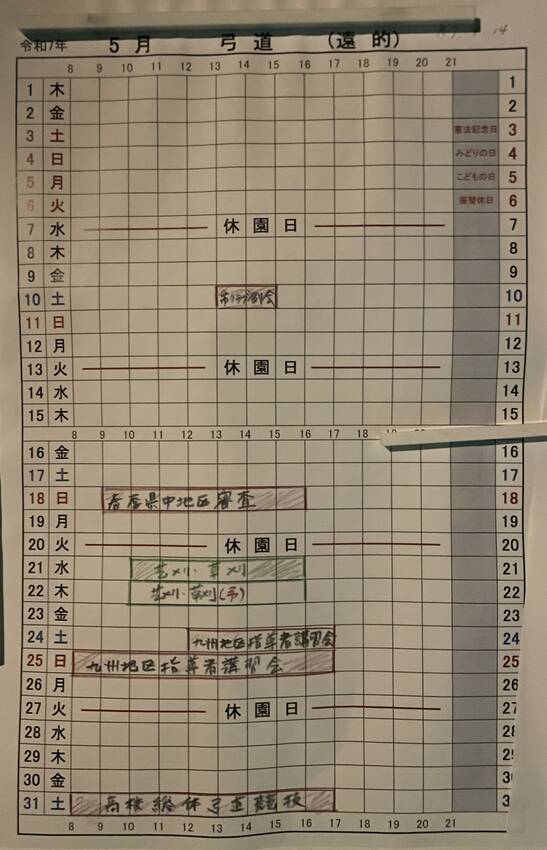 令和7年 5月 弓道 (遠的)
8 9 10 11 12 13 14 15 16 17 18 19 20 21
1 木 1
2 金 2
3 土 憲法記念日 3
4 日 みどりの日 4
5 月 こどもの日 5
6 火 振替休日 6
7 水 休園日 7
8 木 8
9 金 9
10 土 10
11 日 11
12 月 12
13 火 休園日 13
14 水 14
15 木 15
8 9 10 11 12 13 14 15 16 17 18
16 金 16
17 土 17
18 日 春季県中地区審査 18
19 月 19
20 火 休園日 20
21 水 芝刈・草刈 21
22 木 芝刈・草刈(予) 22
23 金 23
24 土 九州地区指導者講習会 24
25 日 九州地区指導者講習会 25
26 月 26
27 火 休園日 27
28 水 28
29 木
30 金
31 土 高校総体弓道競技
8 9 10 11 12 13 14 15 16 17 18 19 20 21